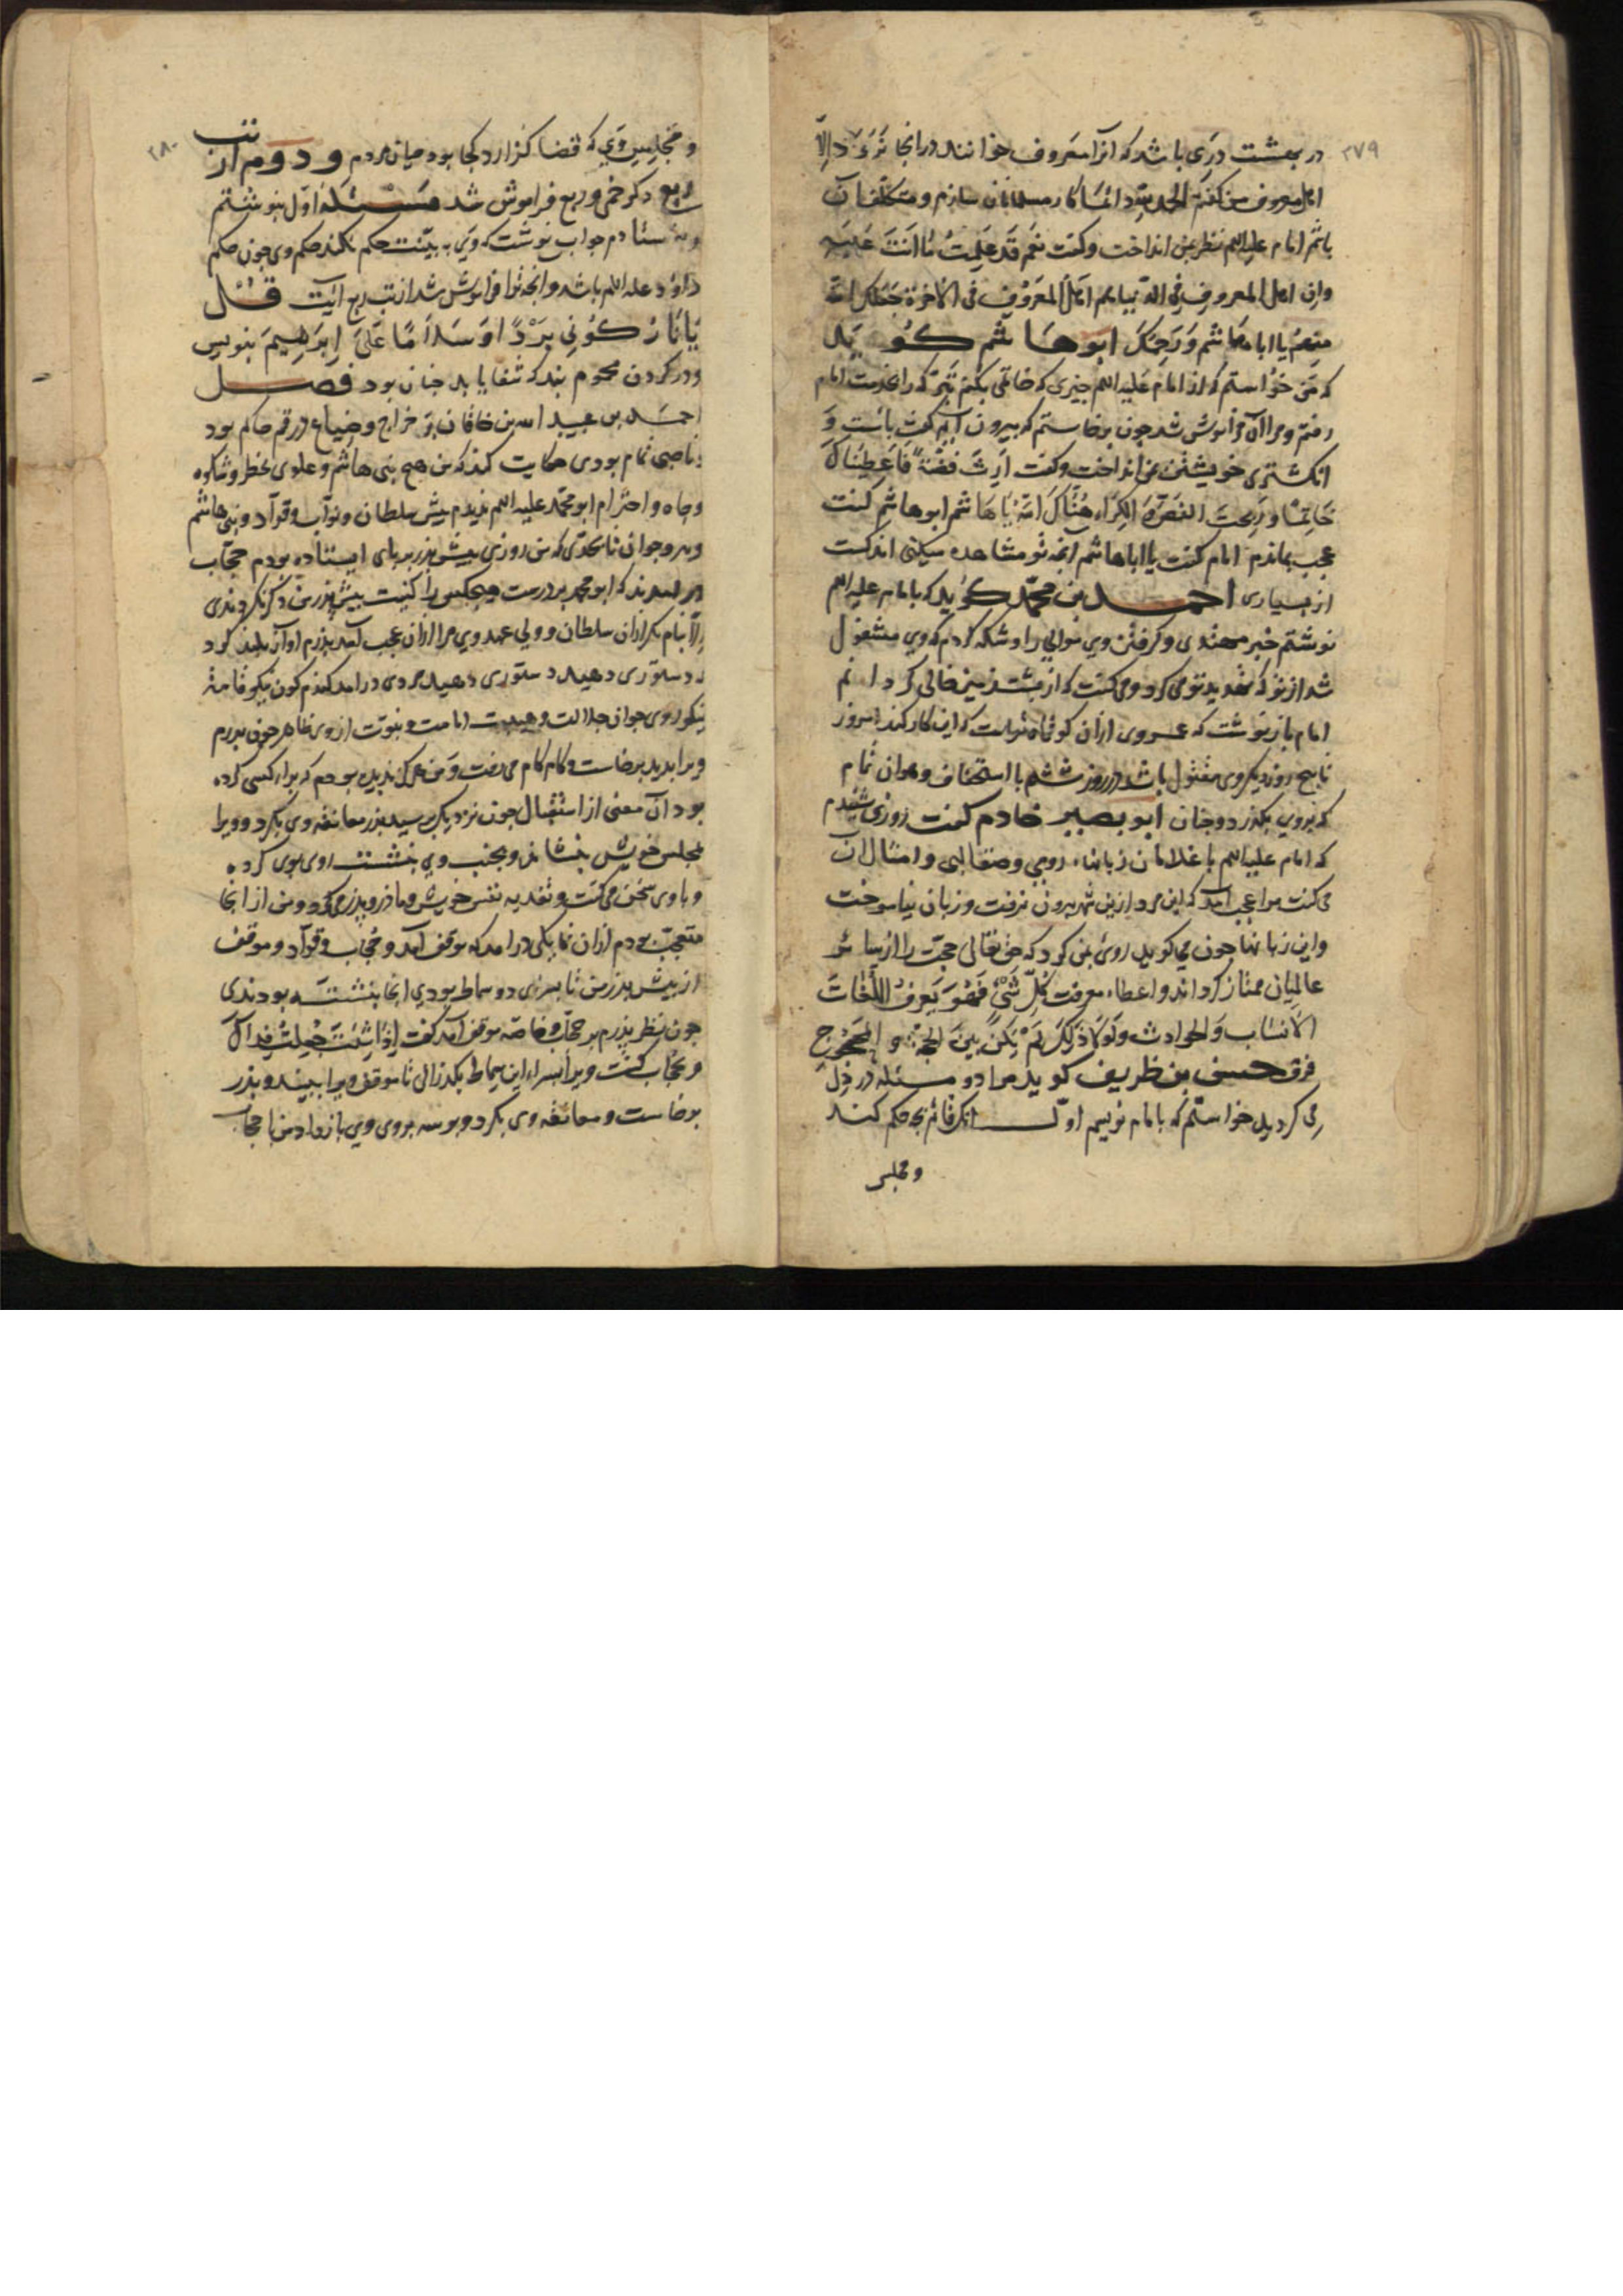 ۲۷۹
در بهشت دری باشد که آنرا معروف خوانند در آنجا نرود الا
اهل معروف من گفتم الحمد لله دائما کار مسلمانان سازم و متکلف آن
باشم امام علیه السلم نظر بمن انداخت وگفت نعم قد علمت ما انت علیه
وان اهل المعروف فی الدنیا هم اهل المعروف فی الاخرة جعلک الله
منهم یا ابا هاشم ورحمک ابو هاشم گوید
که من خواستم که از امام علیه السلم چیزی که خاتمی بکنم تبرک را بخدمت امام
رفتم ومرا آن فراموش شد چون برخاستم که بیرون آیم گفت باست و
انکشتری خویشتن بمن انداخت وگفت اردت فضة فاعطیناک
خاتما وربحت الفص والکراء هناک الله یا ابا هاشم ابو هاشم گفت
عجب بماندم امام گفت یا ابا هاشم آنچه تو مشاهده میکنی اندکست
از بسیاری احمد بن محمد گوید که بامام علیه السلم
نوشتم خبر مهتدی وگرفتن وی موالی را وشکر کردم که وی مشغول
شد از تو که تهدید تو می کرد ومی گفت که از پشت زمین خالی گردانم
امام باز نوشت که عمر وی ازان کوتاه تراست که این کار کند امروز
تا پنج روز دیگر وی مقتول باشد در روز ششم با استخفاف وهوان تمام
که بروی بگذرد وچنان ابو بصیر خادم گفت روزی شنیدم
که امام علیه السلم با غلامان زبانها رومی وصقالبی وامثال آن
می گفت مرا عجب آمد که این مرد ازین شهر بیرون نرفت و زبان نیاموخت
واین زبانها چون می گوید روی بمن کرد که حق تعالی حجت را از سائر
عالمیان ممتاز گرداند واعطاء معرفت کل شئ فهو یعرف اللغات
الانساب والحوادث ولولا ذلک لم یکن بین الحجة والمحجوج
فرق حسن بن ظریف گوید مرا دو مسئله در دل
می گردید خواستم که بامام نویسم اول آنک قائم بچه حکم کند
ومجلس
۲۸۰
ومجلس وی که قضا گزارد کجا بود میان مردم ودوم از تب
ربع دگر خمی وربع فراموش شد مسئله اول بنوشتم
وبفرستادم جواب نوشت که وی به بینت حکم نکند حکم وی چون حکم
داود علیه السلم باشد وانچه ترا فراموش شد از تب ربع آیت قل
یا نار کونی بردا وسلاما علی ابرهیم بنویس
ودر گردن محموم بند که شفا یابد چنان بود فصل
احمد بن عبید الله بن خاقان بر خراج وضیاع در قم حاکم بود
وناصبی تمام بودی حکایت کند که من هیچ بنی هاشم وعلوی بخطر وشکوه
وجاه واحترام ابو محمد علیه السلم ندیدم پیش سلطان ونواب وقواد وبنی هاشم
وپیر وجوان تا بحدی که من روزی پیش پدر برپای ایستاده بودم حجاب
در آمدند که ابو محمد بر درست وهیچکس را کنیت پیش پدر من ذکر نکردندی
الا بنام مگر ازان سلطان وولی عهد وی مرا ازان عجب آمد پدرم آواز بلند کرد
که دستوری دهید دستوری دهید مردی درآمد گندم گون نیکو قامة
نیکو روی جوان جلالت وهیبت امامت ونبوت از وی ظاهر چون پدرم
ویرا بدید برخاست وگام گام می رفت ومن هرگز ندیده بودم که برای کسی کرده
بود آن معنی از استقبال چون نزدیک رسید پدر معانقه وی بکرد وویرا
بمجلس خویش بنشاند وبجنب وی بنشست روی بوی کرده
وباوی سخن می گفت وتفدیه بنفس خویش ومادر وپدر می کرد ومن از آنجا
متعجب بودم ازان تا یکی درآمد که موفق آمد وحجاب وقواد وموفق
از پیش پدر من تا بسرای دو سماط بودی آنجا بنشسته بودندی
چون نظر پدرم بر حجاب وخاصه موفق آمد گفت اذا شئت جعلت فداک
وحجاب گفت ویرا بسراء این سماط بگذرانی تا موفق ویرا نبیند وپدر
برخاست ومعانقه وی بکرد وبوسه بروی وی بازداد من با حجاب